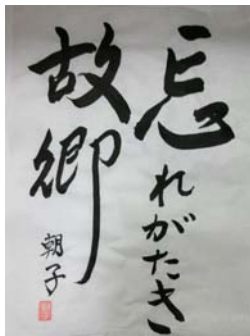 忘れがたき
故郷
朝子